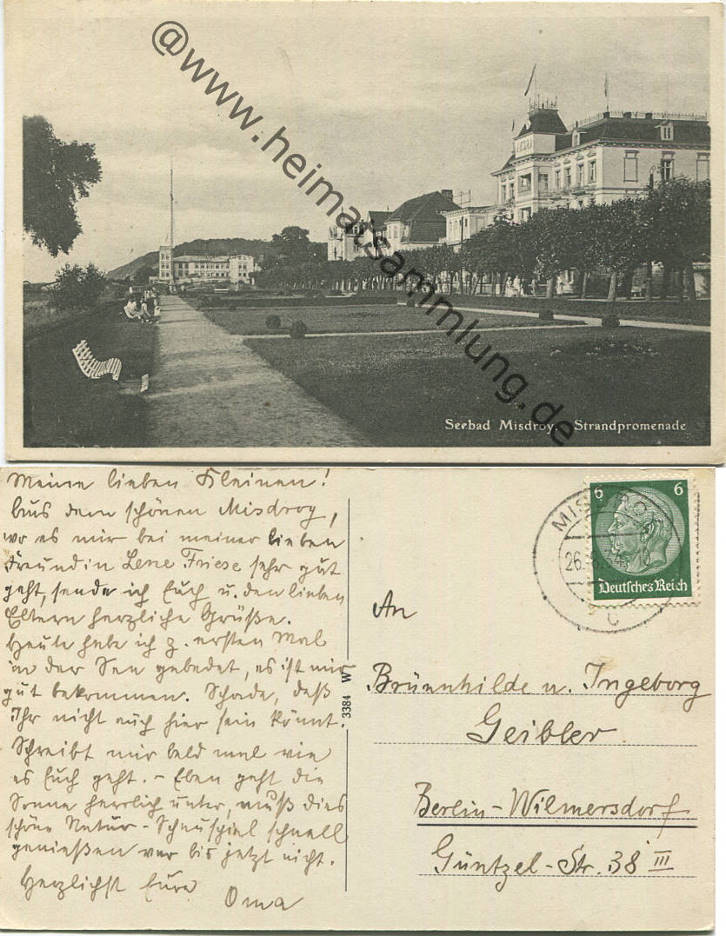 @www.heimatsammlung.de
Seebad Misdroy. Strandpromenade
Meine lieben Kleinen!
Aus dem schönen Misdroy,
wo es mir bei meiner lieben
Freundin Lene Friese sehr gut
geht, sende ich Euch u. den lieben
Eltern herzliche Grüße.
Heute habe ich z. ersten Mal
in der See gebadet, es ist mir
gut bekommen. Schade, daß
Ihr nicht auch hier sein könnt.
Schreibt mir bald mal wie
es Euch geht. – Eben geht die
Sonne herrlich unter, muß dies
schöne Natur-Schauspiel schnell
genießen war bis jetzt nicht.
Herzlichst Eure
Oma
3384 W
6 6
Deutsches Reich
MISDROY
26.
c
An
Brünnhilde u. Ingeborg
Geibler.
Berlin-Wilmersdorf
Güntzel-Str. 38 III